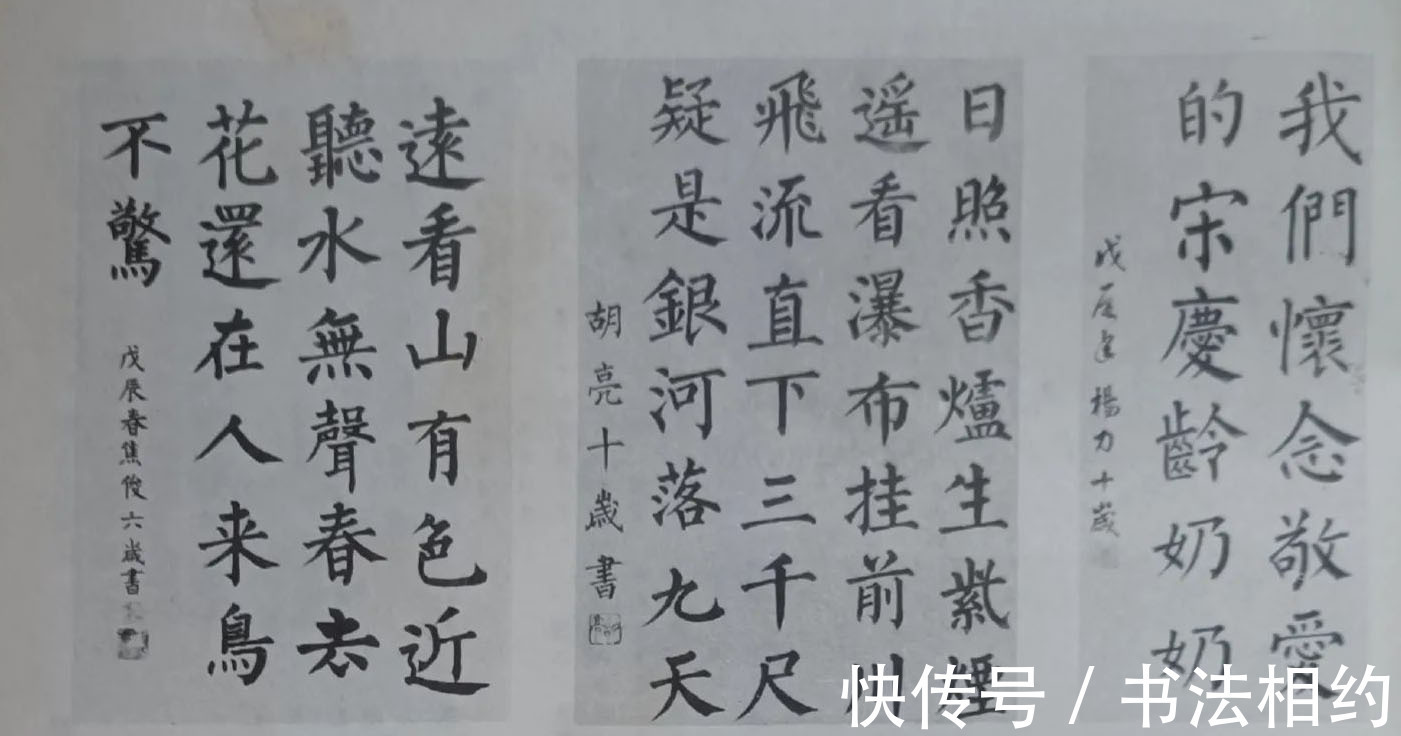 我們懷念敬愛
的宋慶齡奶奶
戊辰年楊力十歲
日照香爐生紫煙
遥看瀑布挂前川
飛流直下三千尺
疑是銀河落九天
胡亮十歲書
遠看山有色近
聽水無聲春去
花還在人来鳥
不驚
戊辰春焦俊六歲書
快传号/书法相约